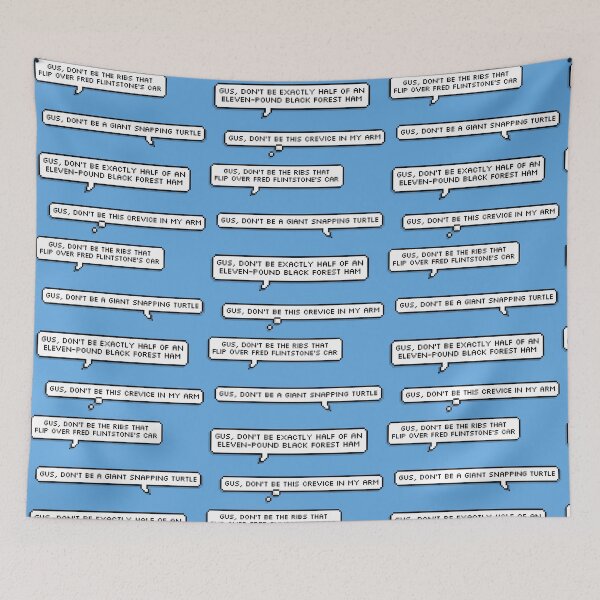 GUS, DON'T BE THE RIBS THAT
FLIP OVER FRED FLINTSTONE'S CAR
GUS, DON'T BE A GIANT SNAPPING TURTLE
GUS, DON'T BE EXACTLY HALF OF AN
ELEVEN-POUND BLACK FOREST HAM
GUS, DON'T BE THIS CREVICE IN MY ARM
GUS, DON'T BE THE RIBS THAT
FLIP OVER FRED FLINTSTONE'S CAR
GUS, DON'T BE A GIANT SNAPPING TURTLE
GUS, DON'T BE EXACTLY HALF OF AN
ELEVEN-POUND BLACK FOREST HAM
GUS, DON'T BE THIS CREVICE IN MY ARM
GUS, DON'T BE THE RIBS THAT
FLIP OVER FRED FLINTSTONE'S CAR
GUS, DON'T BE A GIANT SNAPPING TURTLE
GUS, DON'T BE EXACTLY HALF OF AN
GUS, DON'T BE EXACTLY HALF OF AN
ELEVEN-POUND BLACK FOREST HAM
GUS, DON'T BE THIS CREVICE IN MY ARM
GUS, DON'T BE THE RIBS THAT
FLIP OVER FRED FLINTSTONE'S CAR
GUS, DON'T BE A GIANT SNAPPING TURTLE
GUS, DON'T BE EXACTLY HALF OF AN
ELEVEN-POUND BLACK FOREST HAM
GUS, DON'T BE THIS CREVICE IN MY ARM
GUS, DON'T BE THE RIBS THAT
FLIP OVER FRED FLINTSTONE'S CAR
GUS, DON'T BE A GIANT SNAPPING TURTLE
GUS, DON'T BE EXACTLY HALF OF AN
ELEVEN-POUND BLACK FOREST HAM
GUS, DON'T BE THIS CREVICE IN MY ARM
GUS, DON'T BE THE RIBS THAT
FLIP OVER FRED FLINTSTONE'S CAR
GUS, DON'T BE THE RIBS THAT
FLIP OVER FRED FLINTSTONE'S CAR
GUS, DON'T BE A GIANT SNAPPING TURTLE
GUS, DON'T BE EXACTLY HALF OF AN
ELEVEN-POUND BLACK FOREST HAM
GUS, DON'T BE THIS CREVICE IN MY ARM
GUS, DON'T BE THE RIBS THAT
FLIP OVER FRED FLINTSTONE'S CAR
GUS, DON'T BE A GIANT SNAPPING TURTLE
GUS, DON'T BE EXACTLY HALF OF AN
ELEVEN-POUND BLACK FOREST HAM
GUS, DON'T BE THIS CREVICE IN MY ARM
GUS, DON'T BE THE RIBS THAT
FLIP OVER FRED FLINTSTONE'S CAR
GUS, DON'T BE A GIANT SNAPPING TURTLE
GUS, DON'T BE EXACTLY HALF OF AN